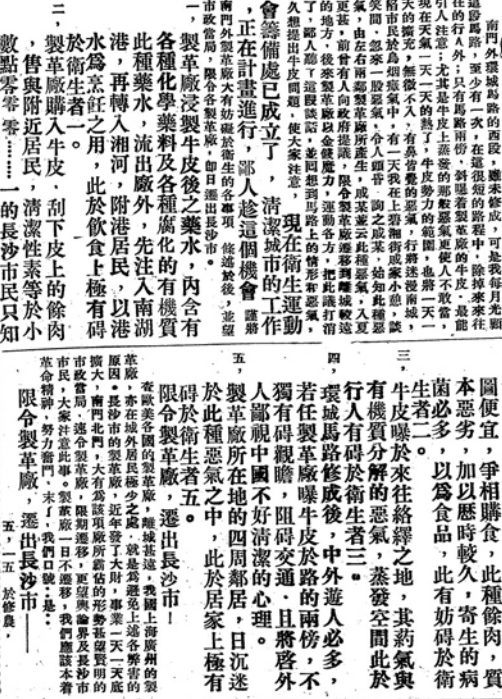 南門外環城馬路的西段，雖修了，可是我每次光顧
這游馬路，至少有一次，在這很短的路程中，除掉來來往
在的行人外；只有馬路兩傍，斜曝着製革廠的牛皮。最能
引人注意；尤其是牛皮上蒸發的那般惡氣更使人不敢當，
現在天氣一天一天的熱了，牛皮勢力的範圍，也將一天一
天的擴充，無微不入，有鼻皆覺的惡氣，行將迷漫南城，
陷市民於烏烟瘴氣中，有一天我在上碧湘街咸家小憩，談
笑間，忽來一股惡氣，令人頭昏，詢之咸某，始知此種惡
氣，由左右兩鄰製革廠所產生，咸某並云此種惡氣，入夏
更甚，前曾有人向政府提議，限令製革廠遷移到離城較遠
的地方，後來製革廠以金錢魔力，運動各方，把此議打消
了，鄙人聽了這段談話，並回想到馬路上的情形和惡氣，
久想提出牛皮問題，使大家注意，現在衛生運動
會籌備處已成立了，清潔城市的工作
，正在計畫進行，鄙人趁這個機會，謹將
南門外製革廠大有妨礙於衛生的各事項，條述於後，並望
市政當局，限令各製革廠，卽日遷出長沙市。
一，製革廠浸製牛皮後之藥水，內含有
各種化學藥料及各種腐化的有機質
此種藥水，流出廠外，先注入南湖
港，再轉入湘河，附港居民，以港
水爲烹飪之用，此於飲食上極有碍
於衛生者一。
二，製革廠購入牛皮，刮下皮上的餘肉
，售與附近居民，清潔性素等於小
數點零零零……一的長沙市民只知
圖便宜，爭相購食，此種餘肉，質
本惡劣，加以歷時較久，寄生的病
菌必多，以爲食品，此有妨碍於衛
生者二。
三，牛皮曝於來往絡繹之地，其葯氣與
有機質分解的惡氣，蒸發空間此於
行人有碍於衛生者三。
四，環城馬路修成後，中外遊人必多，
若任製革廠曝牛皮於路的兩傍，不
獨有碍觀瞻，阻碍交通，且將啓外
人鄙視中國不好清潔的心理。
五，製革廠所在地的四周鄰居，日沉迷
於此種惡氣之中，此於居家上極有
碍於衛生者五。
限令製革廠，遷出長沙市！
查歐美各國的製革廠，離城甚遠，我國上海廣州的製
革廠，亦在城外居民極少之處，就是爲避免上述各弊害的
原因。長沙市的製革廠，近年發了大財，事業一天一天底
擴大，南門北門，大有爲該項廠所霸佔的形勢甚望賢明的
市政當局，遠令製革廠，限期遷移，更望輿論界及長沙市
市民，大家注意此事。製革廠一日不遷移，我們應該本着
革命精神，努力奮鬥，末了，我們口號：是：
限令製革廠，遷出長沙市——
五，一五 於修農，